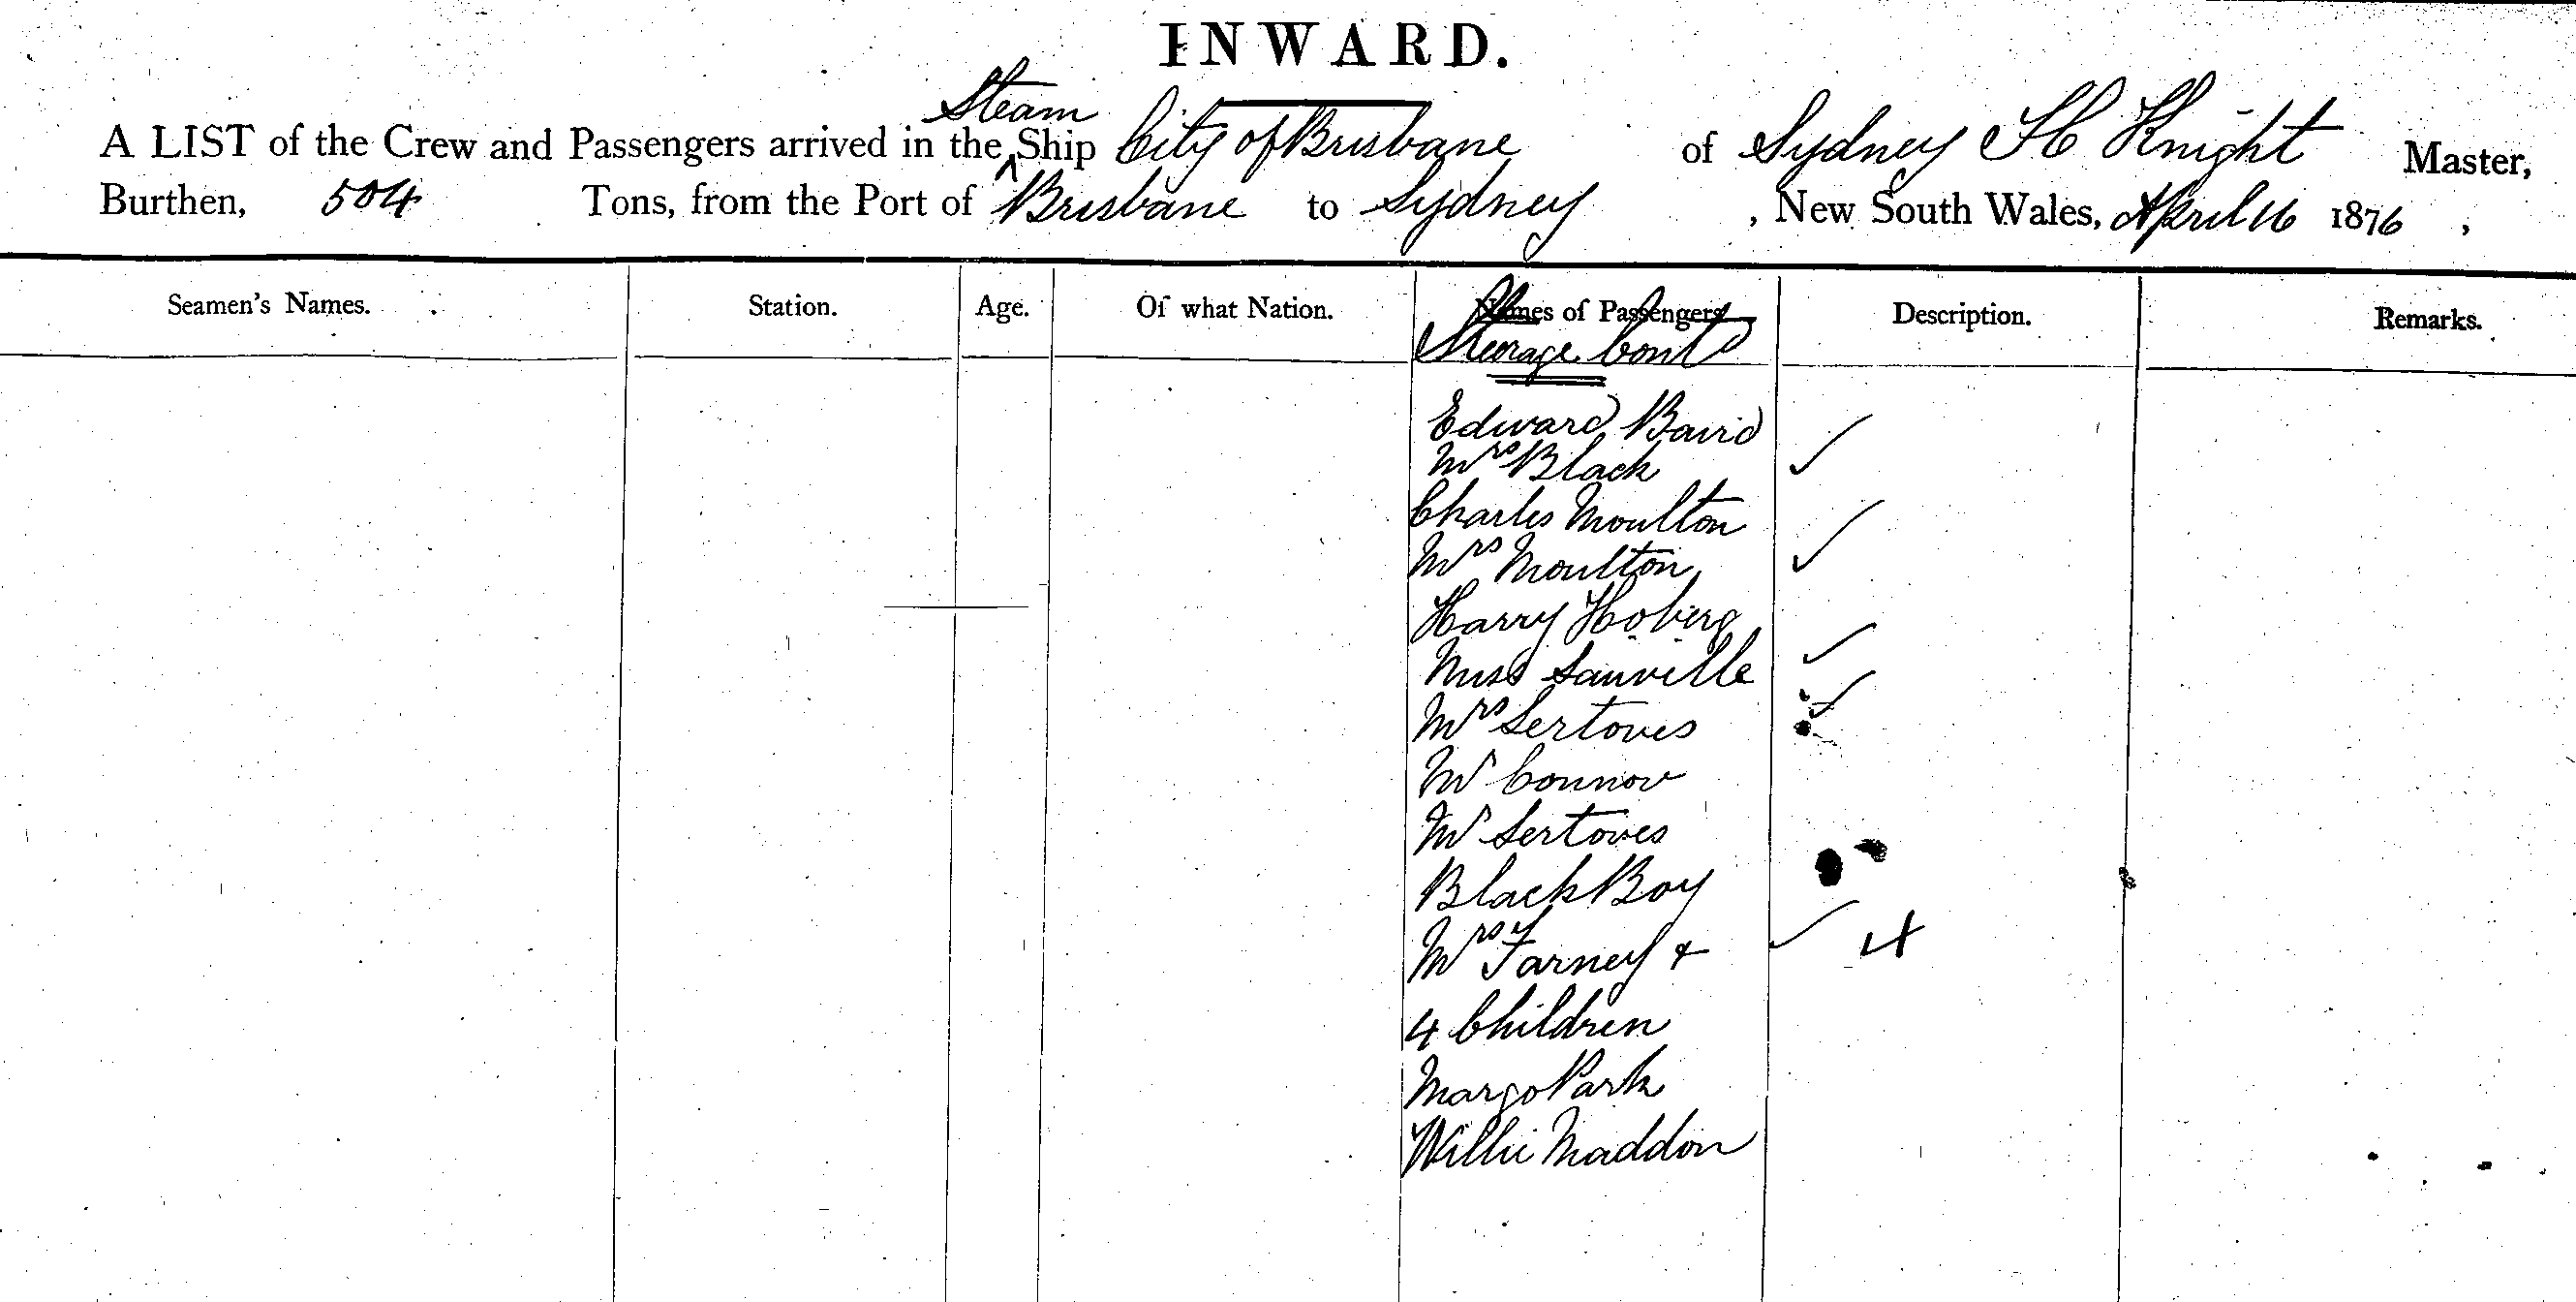 INWARD.
A LIST of the Crew and Passengers arrived in the Steam Ship City of Brisbane of Sydney Knight Master,
Burthen, 504 Tons, from the Port of Brisbane to Sydney, New South Wales, April 16 1876,
Seamen's Names. Station. Age. Of what Nation. Names of Passengers Description. Remarks.
Steerage Contd
Edward Baird
Mrs Black
Charles Moulton
Mrs Moulton
Harry Hoberg
Miss Sanville
Mrs Sertoves
Mr Connor
Mr Sertoves
Black Boy
Mrs Farney + 4
4 Children
Margo Park
Willie Maddon